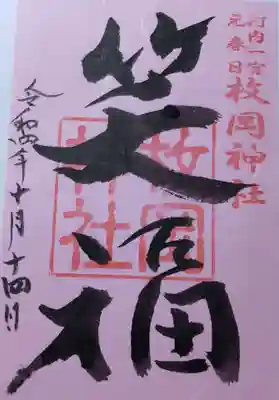 河内一宮
元春日
枚岡神社
笑福
枚岡
神社
令和四年十月十四日